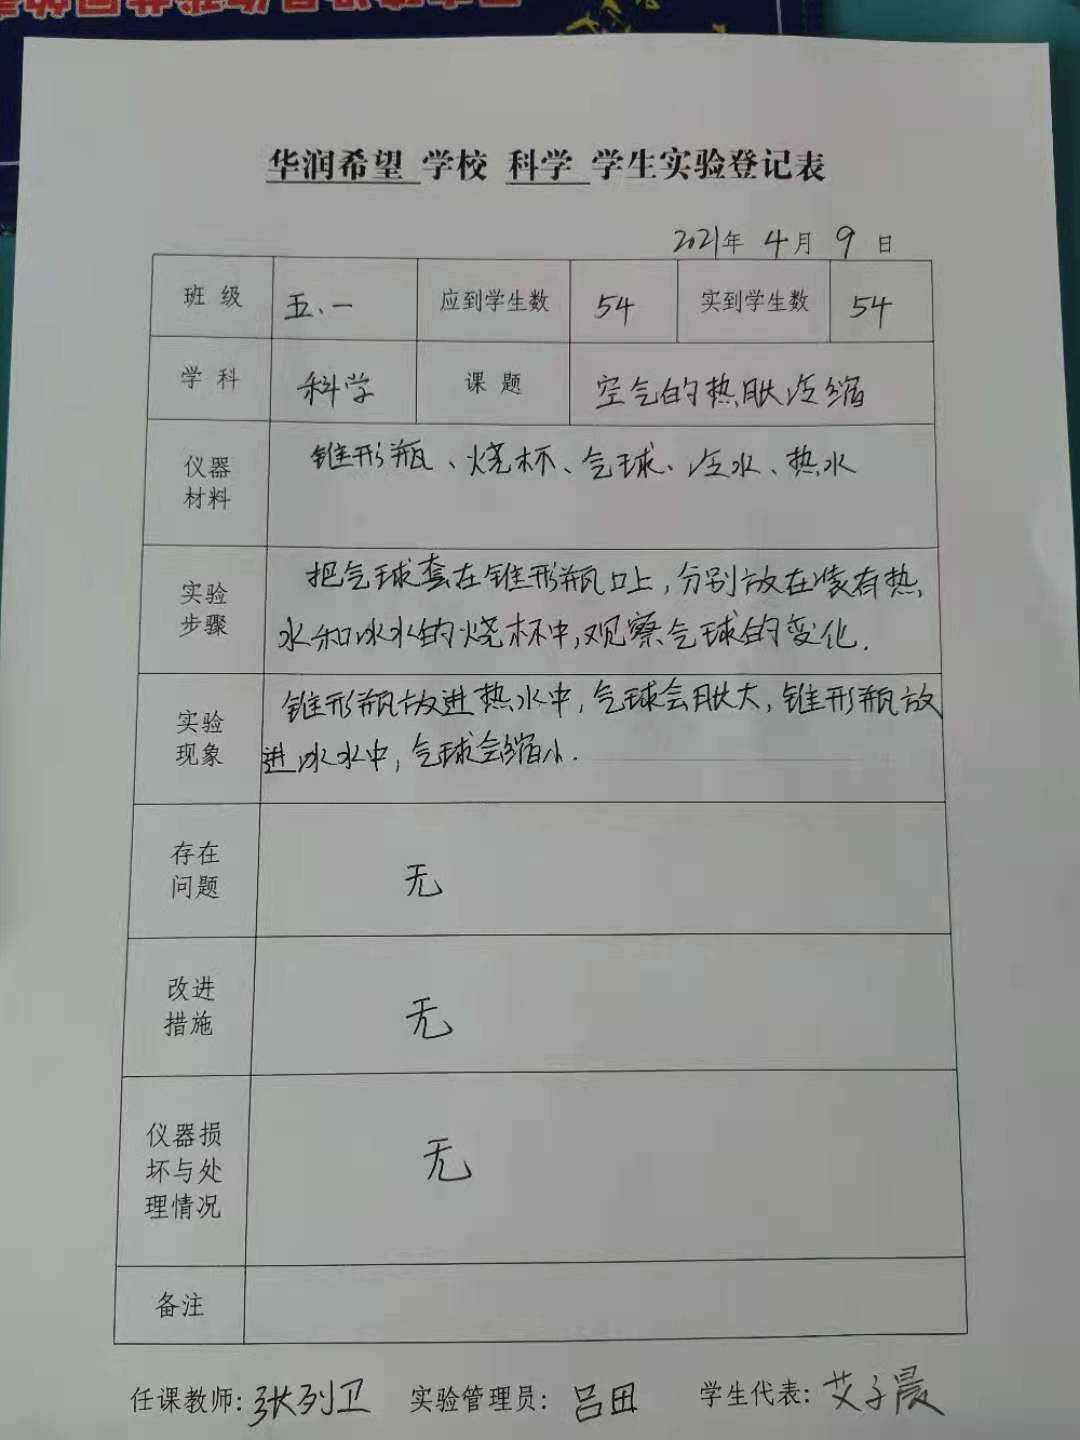 华润希望 学校 科学 学生实验登记表
2021年 4月 9日
班 级 五.一 应到学生数 54 实到学生数 54
学 科 科学 课 题 空气的热胀冷缩
仪器
材料
锥形瓶、烧杯、气球、冷水、热水
实验
步骤
把气球套在锥形瓶口上,分别放在装有热
水和冰水的烧杯中,观察气球的变化.
实验
现象
锥形瓶放进热水中,气球会胀大,锥形瓶放
进冰水中,气球会缩小.
存在
问题
无
改进
措施
无
仪器损
坏与处
理情况
无
备注
任课教师: 张列卫 实验管理员: 吕田 学生代表: 艾子晨